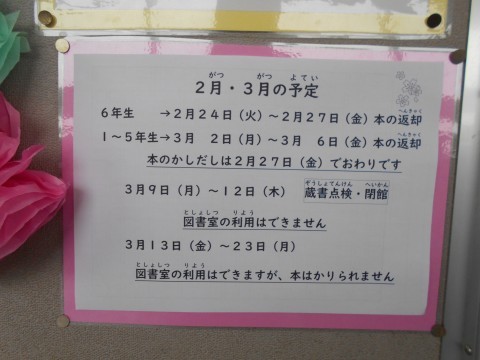 ２月・３月の予定
６年生　→２月２４日（火）～２月２７日（金）本の返却
１～５年生→３月　２日（月）～３月　６日（金）本の返却
本のかしだしは２月２７日（金）でおわりです
３月９日（月）～１２日（木）　蔵書点検・閉館
図書室の利用はできません
３月１３日（金）～２３日（月）
図書室の利用はできますが、本はかりられません